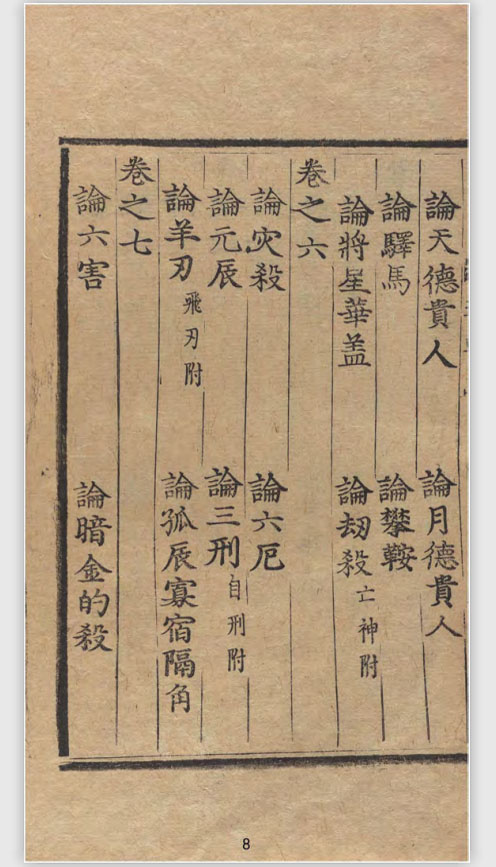 論天德貴人 論月德貴人
論驛馬 論攀鞍
論將星華盖 論刼殺亡神附
卷之六
論灾殺 論六厄
論元辰 論三刑自刑附
論羊刃飛刃附 論孤辰寡宿隔角
卷之七
論六害 論暗金的殺
8